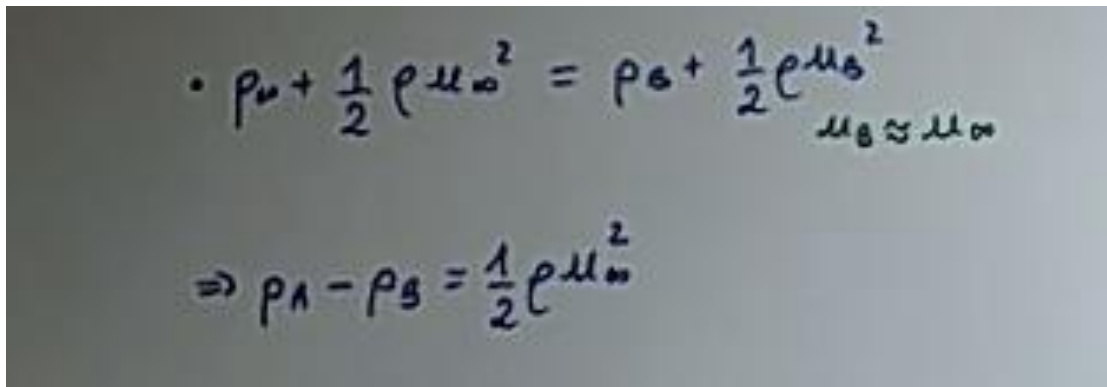 • p∞ + 1/2 ρ u∞² = pB + 1/2 ρ uB²
uB ≈ u∞
⇒ pA - pB = 1/2 ρ u∞²